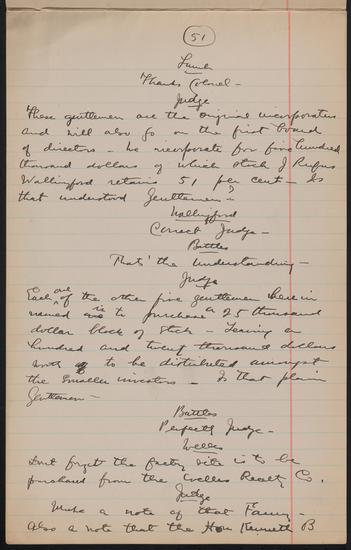 51
Lamb
Thanks Colonel -
Judge
These gentlemen are the original incorporators
and will also go on the first board
of directors - We incorporate for five hundred
thousand dollars of which stock J Rufus
Wallingford retains 51 per cent - Is
that understood Gentlemen?
Wallingford
Correct Judge -
Battles
That's the understanding -
Judge
Each one of the other five gentlemen herein
named is to purchase a 25 thousand
dollar block of stock - Leaving an
hundred and twenty thousand dollars
worth to be distributed amongst
the smaller investors - Is that plain
Gentlemen -
Battles
Perfectly Judge -
Welles
Dont forget the factory site is to be
purchased from the Welles Realty Co.
Judge
Make a note of that Fanny -
Also a note that the Hon Kenneth B